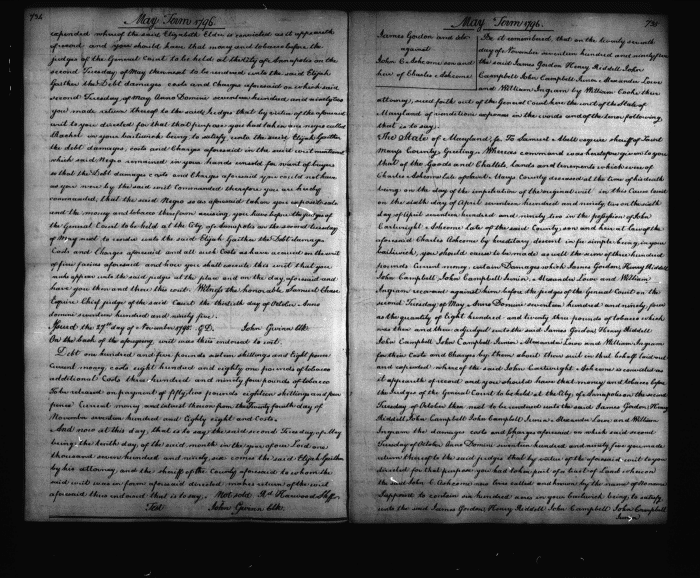 734
May Term 1796.
expended whereof the said Elizabeth Elder is convicted as it appeareth
of record and you should have that money and tobacco before the
judges of the General Court to be held at the City of Annapolis on the
second Tuesday of May then next to be rendered unto the said Elijah
Gaither the Debt damages costs and Charges aforesaid on which said
second Tuesday of May Anno Domini seventeen hundred and ninety two
you made return thereof to the said Judges that by virtue of the aforesaid
writ to you directed for that purpose you had taken one negro called
Rachel in your bailiwick being to satisfy unto the said Elijah Gaither
the debt damages, costs and Charges aforesaid in the said writ mentioned
which said Negro remained in your hands unsold for want of buyers
so that the Debt damages costs and Charges aforesaid you could not have
as you were by the said writ Commanded therefore you are hereby
commanded, that the said Negro so as aforesaid taken you expose to sale
and the money and tobacco therefrom arising, you have before the judges of
the General Court to be held at the City of Annapolis on the second Tuesday
of May next to render unto the said Elijah Gaither the Debt damages
Costs and Charges aforesaid and all such Costs as have accrued on the writ
of fieri facias aforesaid and how you shall execute this writ that you
make appear unto the said judges at the place and on the day aforesaid and
have you then and there this writ. Witness the honorable Samuel Chase
Esquire Chief judge of the said Court the thirtieth day of October Anno
domini seventeen hundred and ninety five.
Issued the 27th day of November 1795. John Gwinn Clk.
On the back of the foregoing writ was thus indorsed to wit.
Debt one hundred and five pounds sixteen shillings and eight pence
current money, costs eight hundred and eighty one pounds of tobacco
additional Costs three hundred and ninety four pounds of tobacco
To be released on payment of fifty two pounds eighteen shillings and four
pence Current money and interest thereon from the Twenty fourth day of
November seventeen hundred and Eighty eight and Costs.
And now at this day, that is to say the said second Tuesday of May
being the tenth day, of the said month in the year of our Lord one
thousand seven hundred and ninety six comes the said Elijah Gaither
by his attorney, and the sheriff of the County aforesaid to whom the
said writ was in form aforesaid directed makes return of the writ
aforesaid thus indorsed that is to say. Not sold Rd. Harwood Shff.
Test John Gwinn Clk.
735
May Term 1796.
James Gordon and others
against
John C. Ashcome son and
heir of Charles Ashcome
Be it remembered, that on the twenty seventh
day of November seventeen hundred and ninety five
the said James Gordon Henry Riddell John
Campbell John Campbell Junior Alexander Low
and William Ingram by William Cooke their
attorney, sued forth out of the General Court here the writ of the State of
Maryland of venditioni exponas in the words and of the tenor following
that is to say.
The State of Maryland fs. To Samuel Abell esquire sheriff of Saint
Marys County, Greeting. Whereas command was heretofore given to you
that of the Goods and Chattels lands and tenements which were of
Charles Ashcome late of Saint Marys County deceased at the time of his death
being on the day of the impetration of the original writ in this cause to wit
on the sixth day of April seventeen hundred and ninety two on the sixth
day of April seventeen hundred and ninety two in the possession of John
Cartwright Ashcome late of the said County, son and heir at law of the
aforesaid Charles Ashcome by hereditary descent in fee simple being in your
bailiwick, you should cause to be made as well the sum of three hundred
pounds Current money, certain Damages which James Gordon Henry Riddell
John Campbell, John Campbell Junior Alexander Low and William
Ingram recovered against him before the judges of the General Court on the
second Tuesday of May Anno Domini seventeen hundred and ninety four
as the quantity of eight hundred and twenty three pounds of tobacco which
was then and there adjudged unto the said James Gordon Henry Riddell
John Campbell John Campbell Junior Alexander Low and William Ingram
for their costs and Charges by them about their suit in that behalf laid out
and expended whereof the said John Cartwright Ashcome is convicted as
it appeareth of record and you should have that money and tobacco before
the Judges of the General Court to be held at the City of Annapolis on the second
Tuesday of October then next to be rendered unto the said James Gordon Henry
Riddell John Campbell John Campbell Junior Alexander Low and William
Ingram the damages costs and Charges aforesaid on which said second
Tuesday of October Anno Domini seventeen hundred and ninety five you made
return thereof to the said judges that by virtue of the aforesaid writ to you
directed for that purpose you had taken part of a tract of Land whereon
the said John C. Ashcome now lives called and known by the name of
Supposed to contain six hundred acres in your bailiwick being, to satisfy
unto the said James Gordon Henry Riddell John Campbell John Campbell
Junior